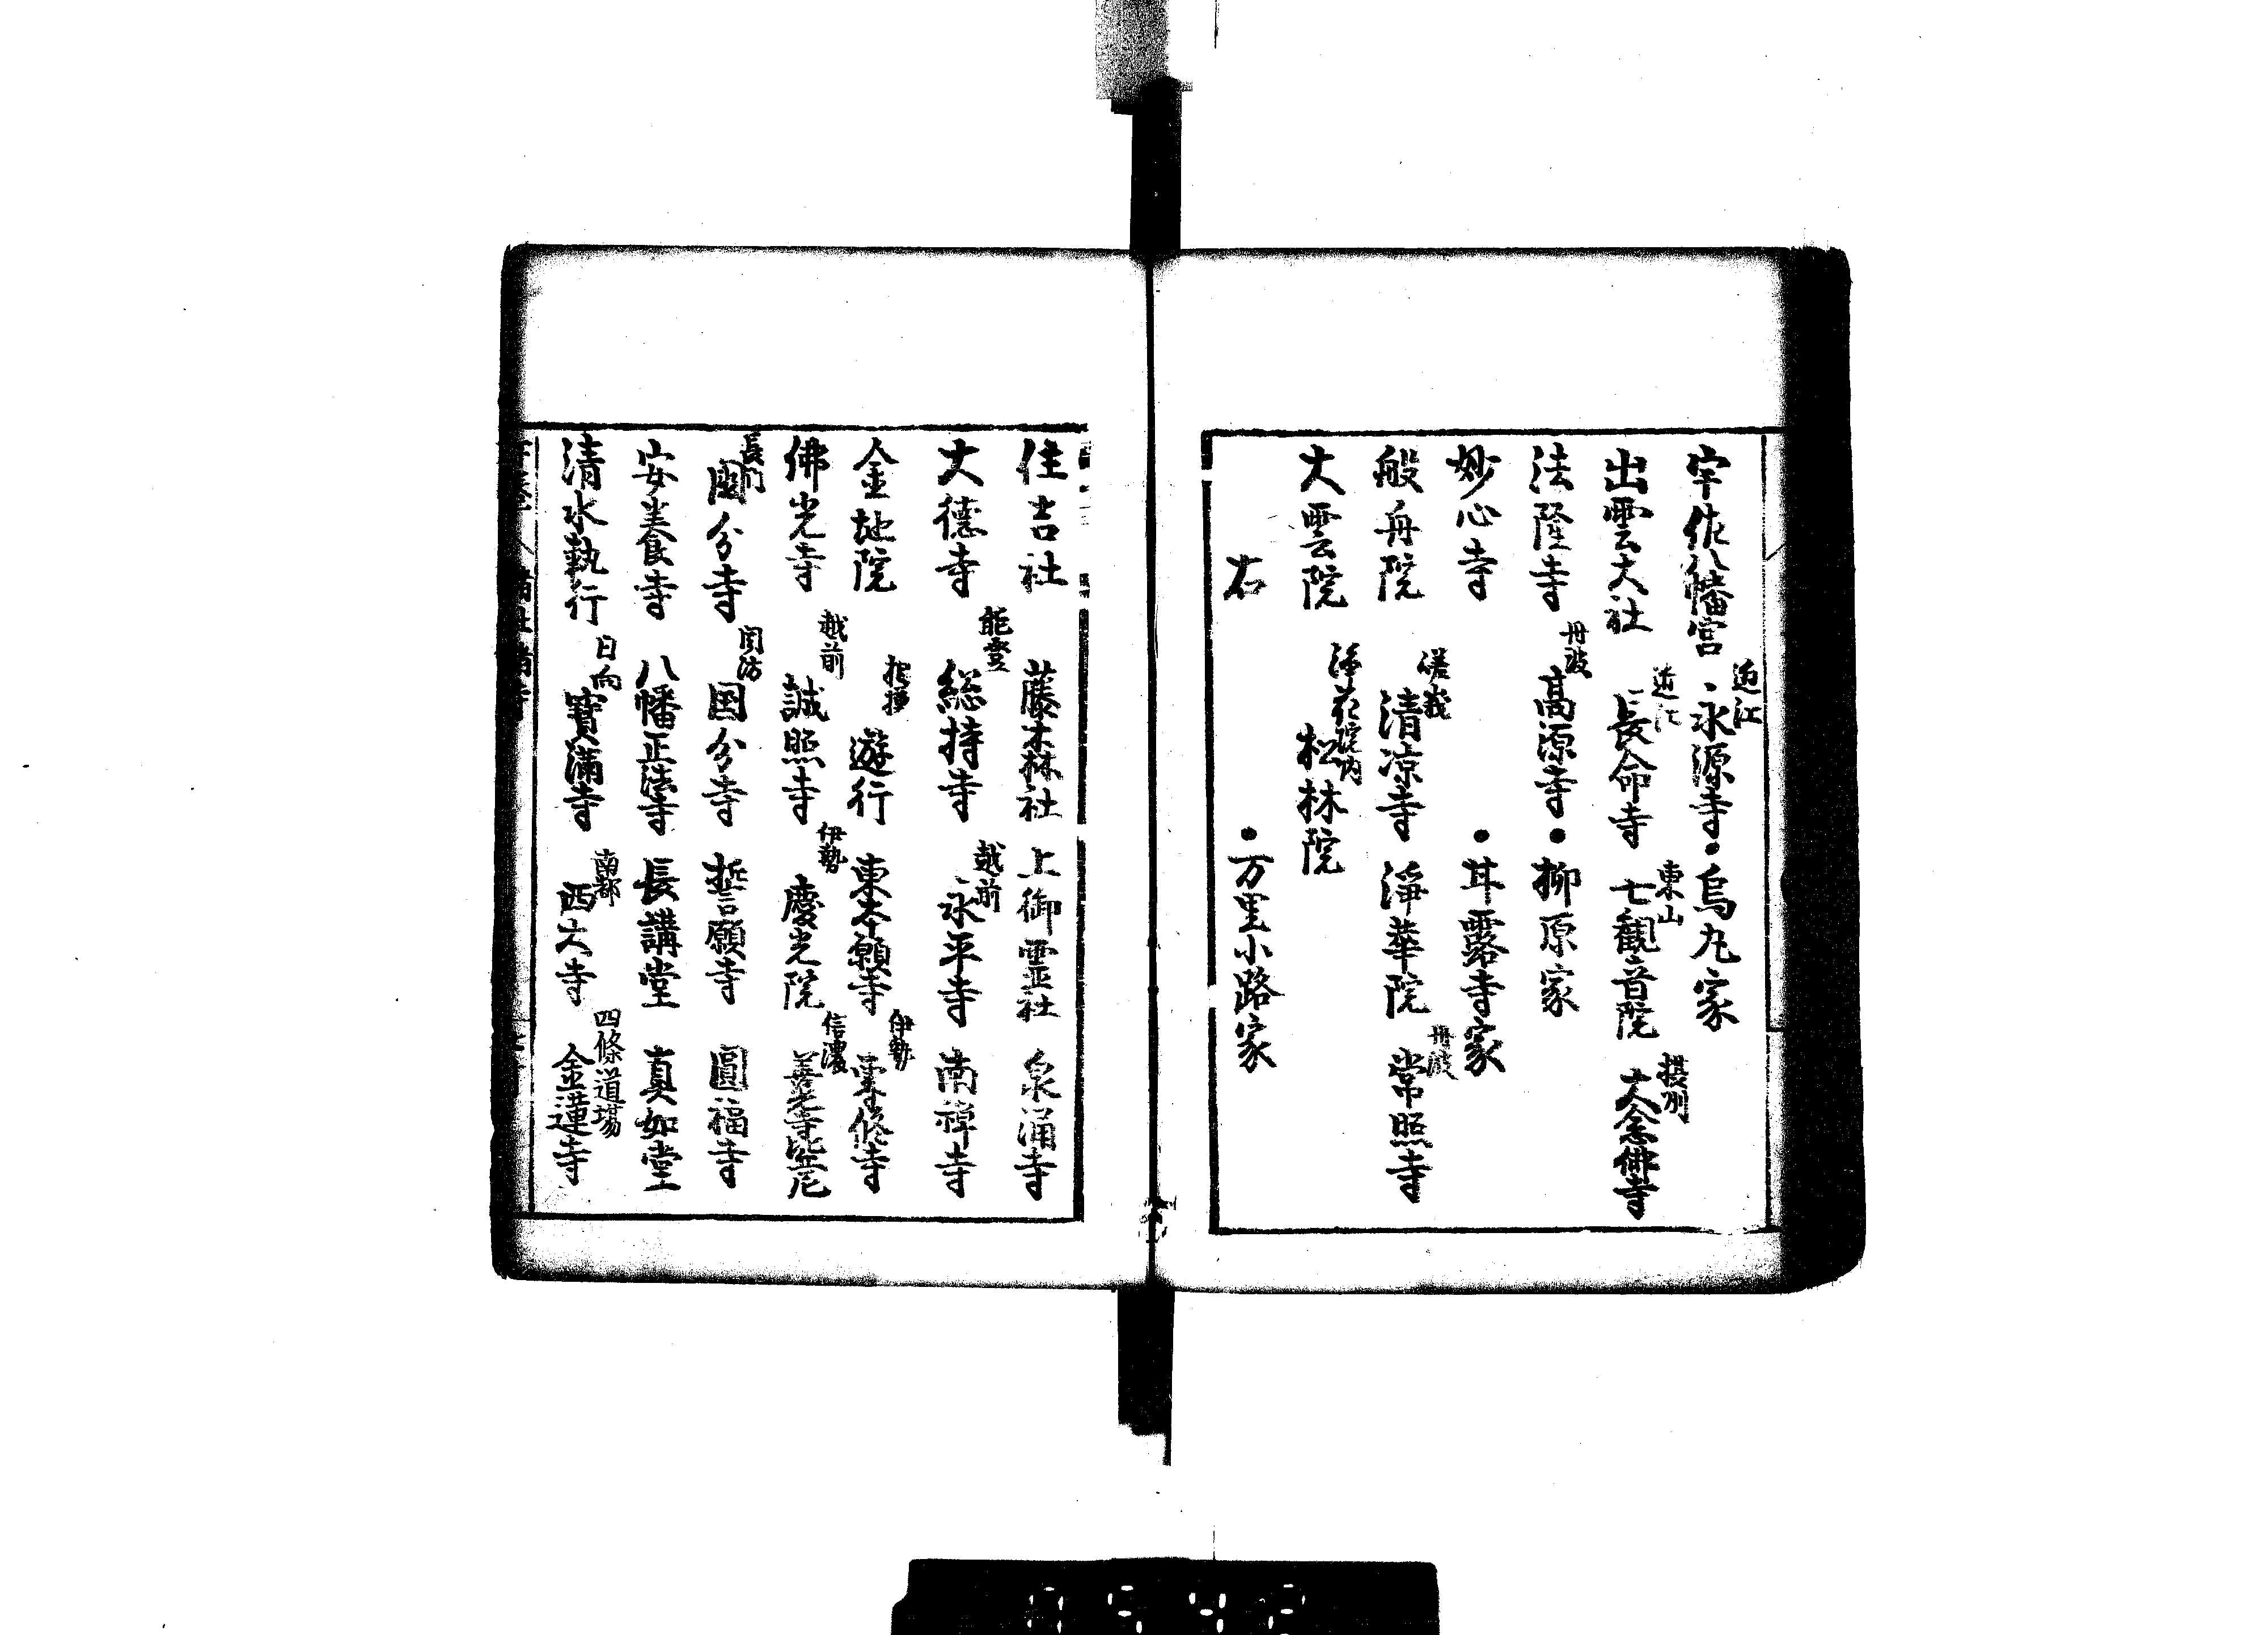 宇佐八幡宮 近江 永源寺 ● 烏丸家
出雲大社 近江 長命寺 東山 七観音院 摂州 大念佛寺
法隆寺 丹波 高源寺 ● 柳原家
妙心寺 ● 甘露寺家
般舟院 嵯峨 清凉寺 淨華院 丹波 常照寺
大雲院 浄花院内 松林院
右 ● 万里小路家
住吉社 藤木森社 上御霊社 泉涌寺
大德寺 能登 総持寺 越前 永平寺 南禅寺
金地院 遊行 東本願寺 伊勢 寺
佛光寺 越前 誠照寺 伊勢 慶光院 信濃 善光寺
長門 國分寺 周防 国分寺 誓願寺 圓福寺
安養寺 八幡正法寺 長講堂 真如堂
清水執行 日向 寳満寺 南都 西大寺 四條道場 金蓮寺